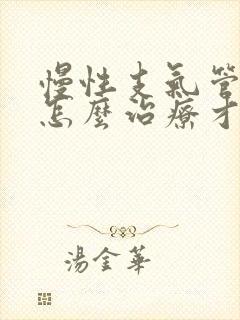 慢性支氣管
怎麼治療才
湯金華